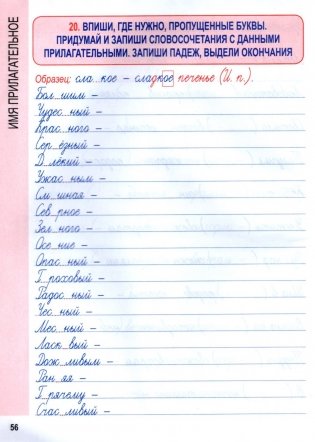 ИМЯ ПРИЛАГАТЕЛЬНОЕ
20. ВПИШИ, ГДЕ НУЖНО, ПРОПУЩЕННЫЕ БУКВЫ.
ПРИДУМАЙ И ЗАПИШИ СЛОВОСОЧЕТАНИЯ С ДАННЫМИ
ПРИЛАГАТЕЛЬНЫМИ. ЗАПИШИ ПАДЕЖ, ВЫДЕЛИ ОКОНЧАНИЯ
Образец: сла кое – сладкое печенье (И. п.).
Бол шим –
Чудес ный –
Крас ного –
Сер ёзный –
Д лёкий –
Ужас ным –
См шная –
Сев рное –
Зел ного –
Осе ние –
Опас ный –
Г роховый –
Радос ный –
Чес ный –
Мес ный –
Ласк вый –
Дож ливым –
Ран яя –
Г рячему –
Счас ливый –
56